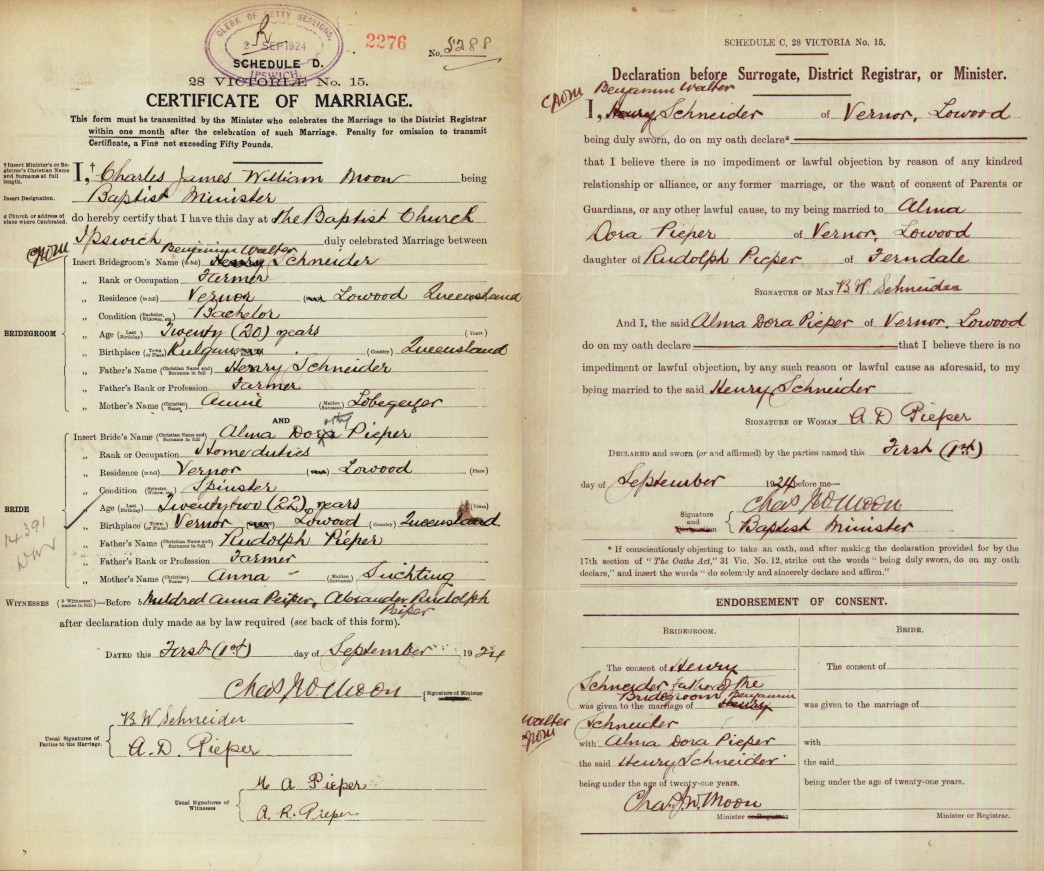 CLERK OF PETTY SESSIONS,
2 SEP 1924
IPSWICH.
2276
No. 5288
SCHEDULE D.
28 VICTORIÆ No. 15.
CERTIFICATE OF MARRIAGE.
This form must be transmitted by the Minister who celebrates the Marriage to the District Registrar
within one month after the celebration of such Marriage. Penalty for omission to transmit
Certificate, a Fine not exceeding Fifty Pounds.
† Insert Minister's or Registrar's Christian Name and Surname at full length.
I, † Charles James William Moon being
Insert Designation.
Baptist Minister
a Church or address of place where Celebrated.
do hereby certify that I have this day at The Baptist Church
Ipswich duly celebrated Marriage between
CJWM
Benjamin Walter
BRIDEGROOM
Insert Bridegroom's Name (in full) Henry Schneider
„ Rank or Occupation Farmer
„ Residence (in full) Vernor Lowood Queensland
„ Condition (Bachelor, Widower, etc.) Bachelor
„ Age (Last Birthday) Twenty (20) years (Years)
„ Birthplace (Town or Place) (Country) Queensland
„ Father's Name (Christian Name and Surname in full) Henry Schneider
„ Father's Rank or Profession Farmer
„ Mother's Name (Christian Name) Annie (Maiden Surname) Lobegeiger
AND
othy
BRIDE
Insert Bride's Name (Christian Name and Surname in full) Alma Dora Pieper
„ Rank or Occupation Home duties
„ Residence (in full) Vernor Lowood (Place)
„ Condition (Spinster, Widow, etc.) Spinster
„ Age (Last birthday) Twentytwo (22) years (Years)
„ Birthplace (Town or Place) Vernor Lowood (Country) Queensland
„ Father's Name (Christian Name and Surname in full) Rudolph Pieper
„ Father's Rank or Profession Farmer
„ Mother's Name (Christian Name) Anna – (Maiden Surname) Suchting
14391
WITNESSES (2 Witnesses' names in full)—Before b Mildred Anna Peiper, Alexander Rudolph
Peiper
after declaration duly made as by law required (see back of this form).
DATED this First (1st) day of September 1924
Chas J W Moon (Signature of Minister
Usual Signatures of Parties to the Marriage.
B W Schneider
A. D. Pieper
Usual Signatures of Witnesses
M A Pieper
A. R. Pieper
SCHEDULE C, 28 VICTORIA No. 15.
Declaration before Surrogate, District Registrar, or Minister.
CJWM Benjamin Walter
I, Henry Schneider of Vernor, Lowood
being duly sworn, do on my oath declare*
that I believe there is no impediment or lawful objection by reason of any kindred
relationship or alliance, or any former marriage, or the want of consent of Parents or
Guardians, or any other lawful cause, to my being married to Alma
Dora Pieper of Vernor, Lowood
daughter of Rudolph Pieper of Ferndale
SIGNATURE OF MAN B. W. Schneider
And I, the said Alma Dora Pieper of Vernor, Lowood
do on my oath declare that I believe there is no
impediment or lawful objection, by any such reason or lawful cause as aforesaid, to my
being married to the said Henry Schneider
SIGNATURE OF WOMAN A. D Pieper
DECLARED and sworn (or and affirmed) by the parties named this First (1st)
day of September 1924 before me—
Signature and Designation
Chas J W Moon
Baptist Minister
* If conscientiously objecting to take an oath, and after making the declaration provided for by the
17th section of "The Oaths Act," 31 Vic. No. 12, strike out the words "being duly sworn, do on my oath
declare," and insert the words "do solemnly and sincerely declare and affirm."
ENDORSEMENT OF CONSENT.
BRIDEGROOM.
The consent of Henry
Schneider father of the
Bridegroom Benjamin
was given to the marriage of Henry
Walter
CJWM
Schneider
with Alma Dora Pieper
the said Henry Schneider
being under the age of twenty-one years.
Chas. J. W. Moon
Minister or Registrar
BRIDE.
The consent of
was given to the marriage of
with
the said
being under the age of twenty-one years.
Minister or Registrar.